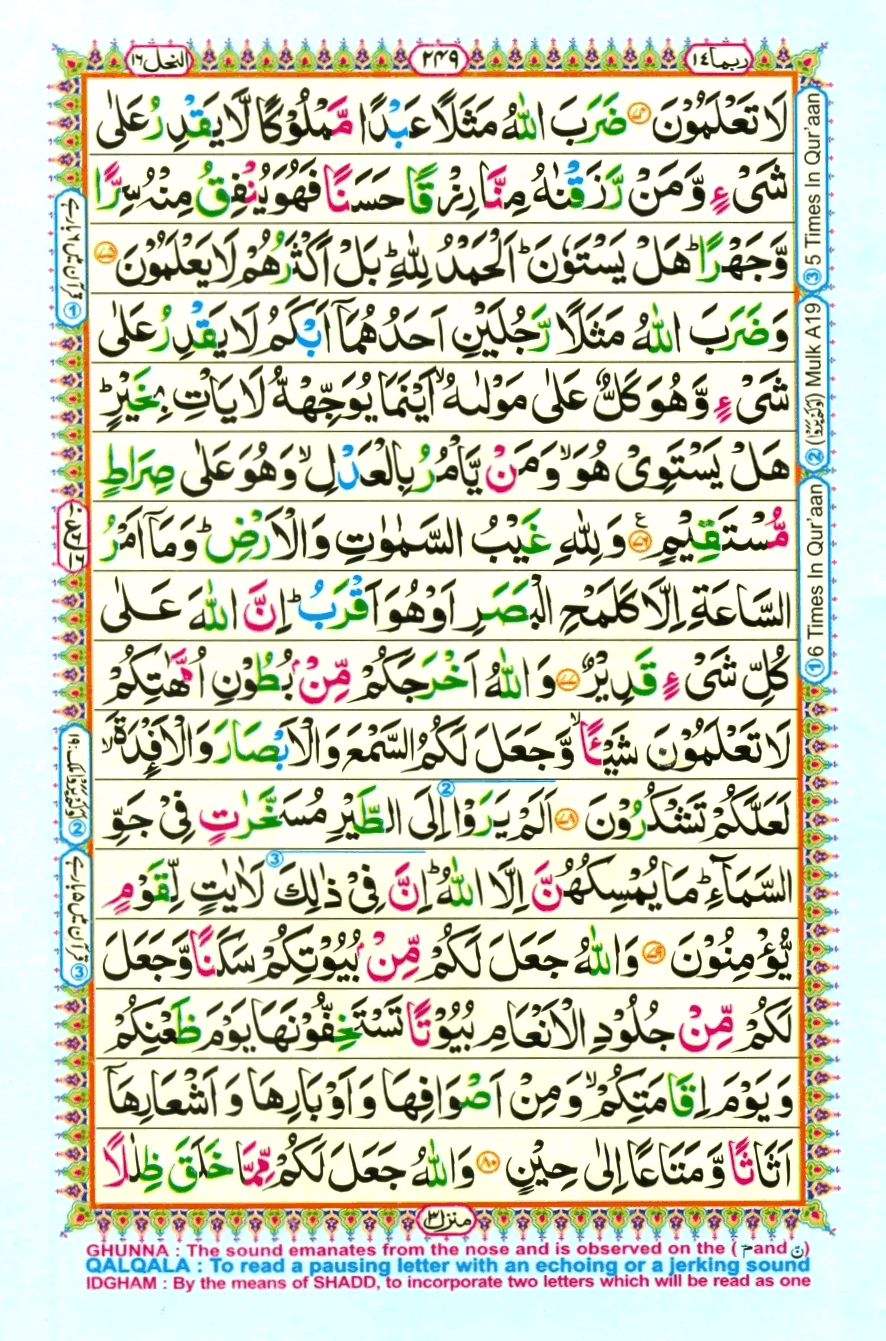 ربما ١٤
٢٤٩
النحل ١٦
لَا تَعْلَمُوْنَ ﴿۷۴﴾ ضَرَبَ اللّٰهُ مَثَلًا عَبْدًا مَّمْلُوْكًا لَّا يَقْدِرُ عَلٰى
شَىْءٍ وَّمَنْ رَّزَقْنٰهُ مِنَّا رِزْقًا حَسَنًا فَهُوَ يُنْفِقُ مِنْهُ سِرًّا
وَّجَهْرًا ؕ هَلْ يَسْتَوٗنَ ؕ اَلْحَمْدُ لِلّٰهِ ؕ بَلْ اَكْثَرُهُمْ لَا يَعْلَمُوْنَ ﴿۷۵﴾
وَضَرَبَ اللّٰهُ مَثَلًا رَّجُلَيْنِ اَحَدُهُمَاۤ اَبْكَمُ لَا يَقْدِرُ عَلٰى
شَىْءٍ وَّهُوَ كَلٌّ عَلٰى مَوْلٰىهُ ۙ اَيْنَمَا يُوَجِّهْهُّ لَا يَاْتِ بِخَيْرٍ ؕ
هَلْ يَسْتَوِىْ هُوَ ۙ وَمَنْ يَّاْمُرُ بِالْعَدْلِ ۙ وَهُوَ عَلٰى صِرَاطٍ
مُّسْتَقِيْمٍ ﴿۷۶﴾ ع وَلِلّٰهِ غَيْبُ السَّمٰوٰتِ وَالْاَرْضِ ؕ وَمَاۤ اَمْرُ
السَّاعَةِ اِلَّا كَلَمْحِ الْبَصَرِ اَوْ هُوَ اَقْرَبُ ؕ اِنَّ اللّٰهَ عَلٰى
كُلِّ شَىْءٍ قَدِيْرٌ ﴿۷۷﴾ وَاللّٰهُ اَخْرَجَكُمْ مِّنْۢ بُطُوْنِ اُمَّهٰتِكُمْ
لَا تَعْلَمُوْنَ شَيْـًٔا ۙ وَّجَعَلَ لَكُمُ السَّمْعَ وَالْاَبْصَارَ وَالْاَفْـِٕدَةَ ۙ
لَعَلَّكُمْ تَشْكُرُوْنَ ﴿۷۸﴾ ② اَلَمْ يَرَوْا اِلَى الطَّيْرِ مُسَخَّرٰتٍ فِىْ جَوِّ
السَّمَآءِ ؕ مَا يُمْسِكُهُنَّ اِلَّا اللّٰهُ ؕ ③ اِنَّ فِىْ ذٰلِكَ لَاٰيٰتٍ لِّقَوْمٍ
يُّؤْمِنُوْنَ ﴿۷۹﴾ وَاللّٰهُ جَعَلَ لَكُمْ مِّنْۢ بُيُوْتِكُمْ سَكَنًا وَّجَعَلَ
لَكُمْ مِّنْ جُلُوْدِ الْاَنْعَامِ بُيُوْتًا تَسْتَخِفُّوْنَهَا يَوْمَ ظَعْنِكُمْ
وَيَوْمَ اِقَامَتِكُمْ ۙ وَمِنْ اَصْوَافِهَا وَاَوْبَارِهَا وَاَشْعَارِهَاۤ
اَثَاثًا وَّمَتَاعًا اِلٰى حِيْنٍ ﴿۸۰﴾ وَاللّٰهُ جَعَلَ لَكُمْ مِّمَّا خَلَقَ ظِلٰلًا
③ 5 Times In Qur'aan
② (اَوَلَمْ يَرَوْا) Mulk A19
① 6 Times In Qur'aan
① قرآن میں ٦ بارہے
② اَوَلَمْ يَرَوْا ملک: ١٩
③ قرآن میں ۵ بارہے
منزل ٣
GHUNNA : The sound emanates from the nose and is observed on the ( م and ن )
QALQALA : To read a pausing letter with an echoing or a jerking sound
IDGHAM : By the means of SHADD, to incorporate two letters which will be read as one